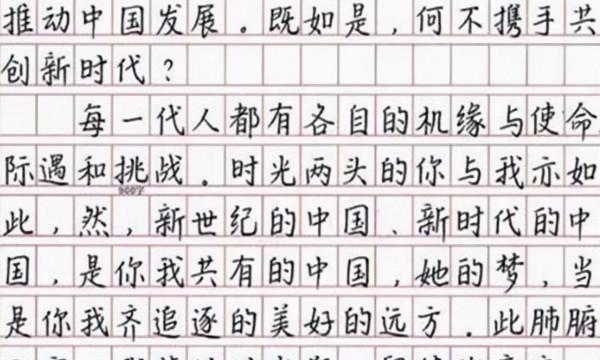 推动中国发展。既如是，何不携手共
创新时代？
每一代人都有各自的机缘与使命、
际遇和挑战。时光两头的你与我亦如
900字
此，然，新世纪的中国、新时代的中
国，是你我共有的中国，她的梦，当
是你我齐追逐的美好的远方。此肺腑